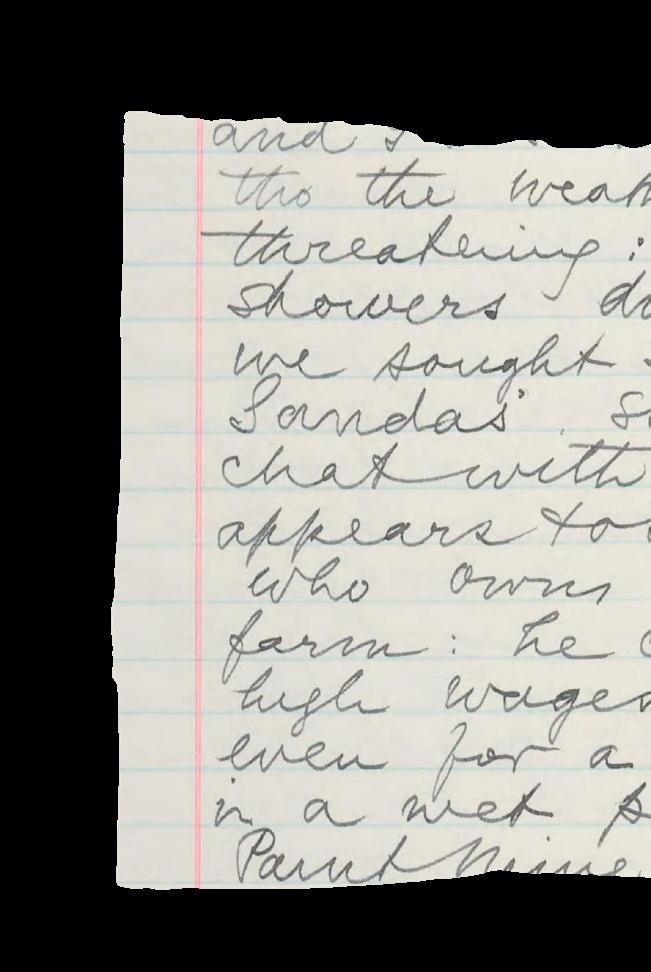 and
tho the weat
threatening :
showers du
we sought
Sandas'. So
chat with
appears to
who owns
farm : he
high wages
even for a
in a wet p
Paint Mine